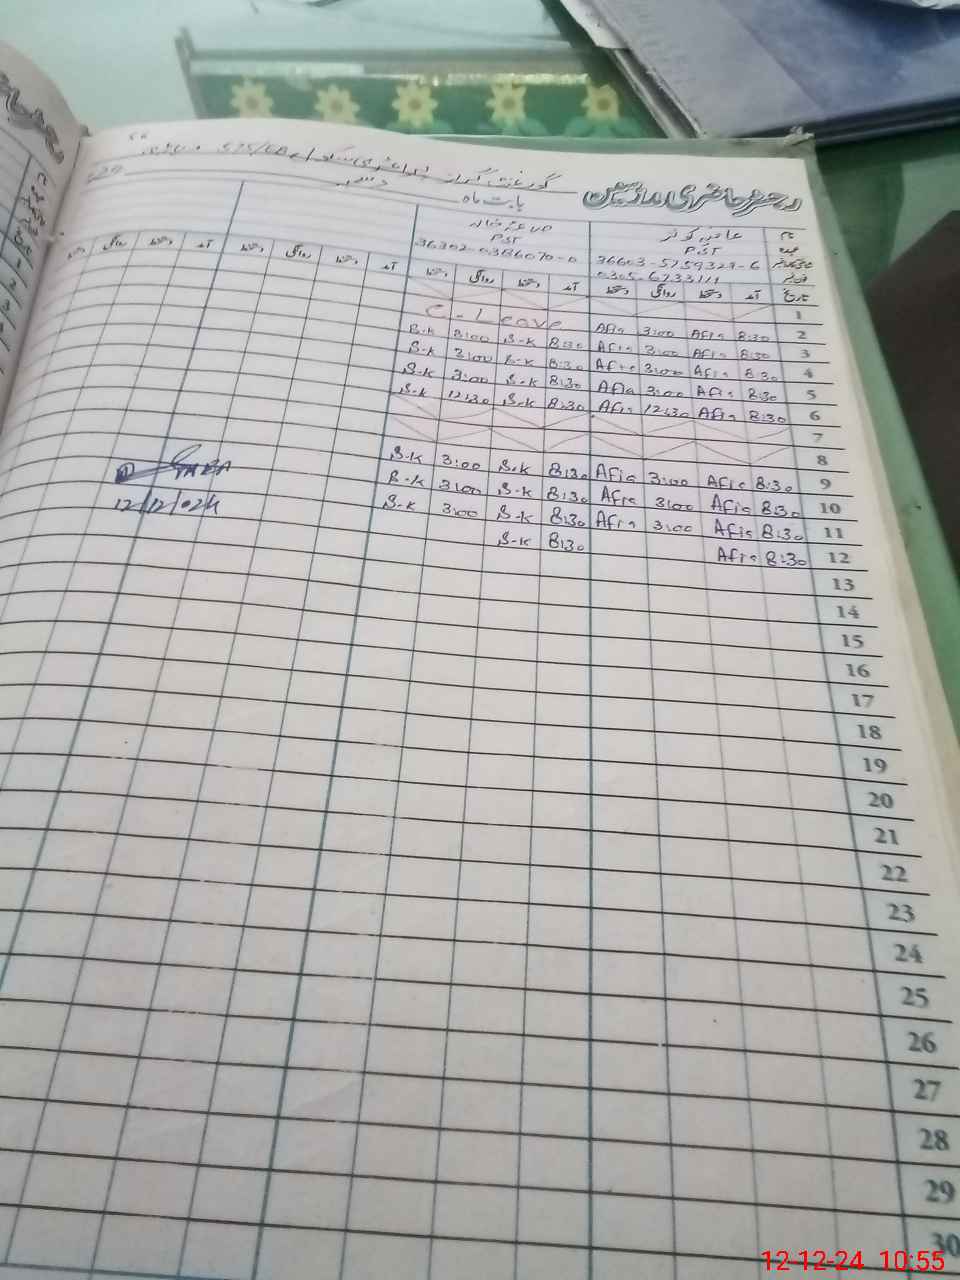 رجسٹر حاضری ملازمین
گورنمنٹ گرلز 575/EB
بابت ماہ دسمبر
نام
عہدہ PST PST
شناختی کارڈ نمبر 36603-5759329-6 36302-0386070-0
تاریخ آمد دستخط روانگی دستخط آمد دستخط روانگی دستخط آمد دستخط روانگی دستخط آمد دستخط روانگی دستخط
1
2 8:30 Afia 3:00 Afia C-Leave
3 8:30 Afia 3:00 Afia 8:30 S-K 3:00 S-K
4 8:30 Afia 3:00 Afia 8:30 S-K 3:00 S-K
5 8:30 Afia 3:00 Afia 8:30 S-K 3:00 S-K
6 8:30 Afia 12:30 Afia 8:30 S-K 12:30 S-K
7
8
9 8:30 Afia 3:00 Afia 8:30 S-K 3:00 S-K
10 8:30 Afia 3:00 Afia 8:30 S-K 3:00 S-K
11 8:30 Afia 3:00 Afia 8:30 S-K 3:00 S-K
12 8:30 Afia 8:30 S-K
12/12/024
13
14
15
16
17
18
19
20
21
22
23
24
25
26
27
28
29
30
12-12-24 10:55